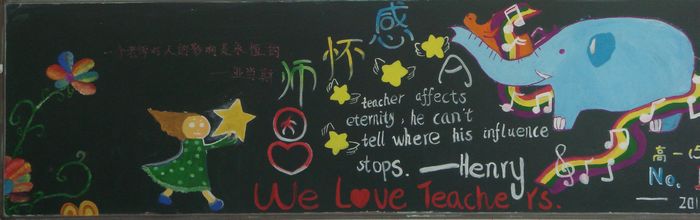 一个老师对人的影响是永恒的
——亚当斯
感怀师恩
A
teacher affects
eternity, he can't
tell where his influence
stops. —Henry
We Love Teachers.
高一(5
No.
—201